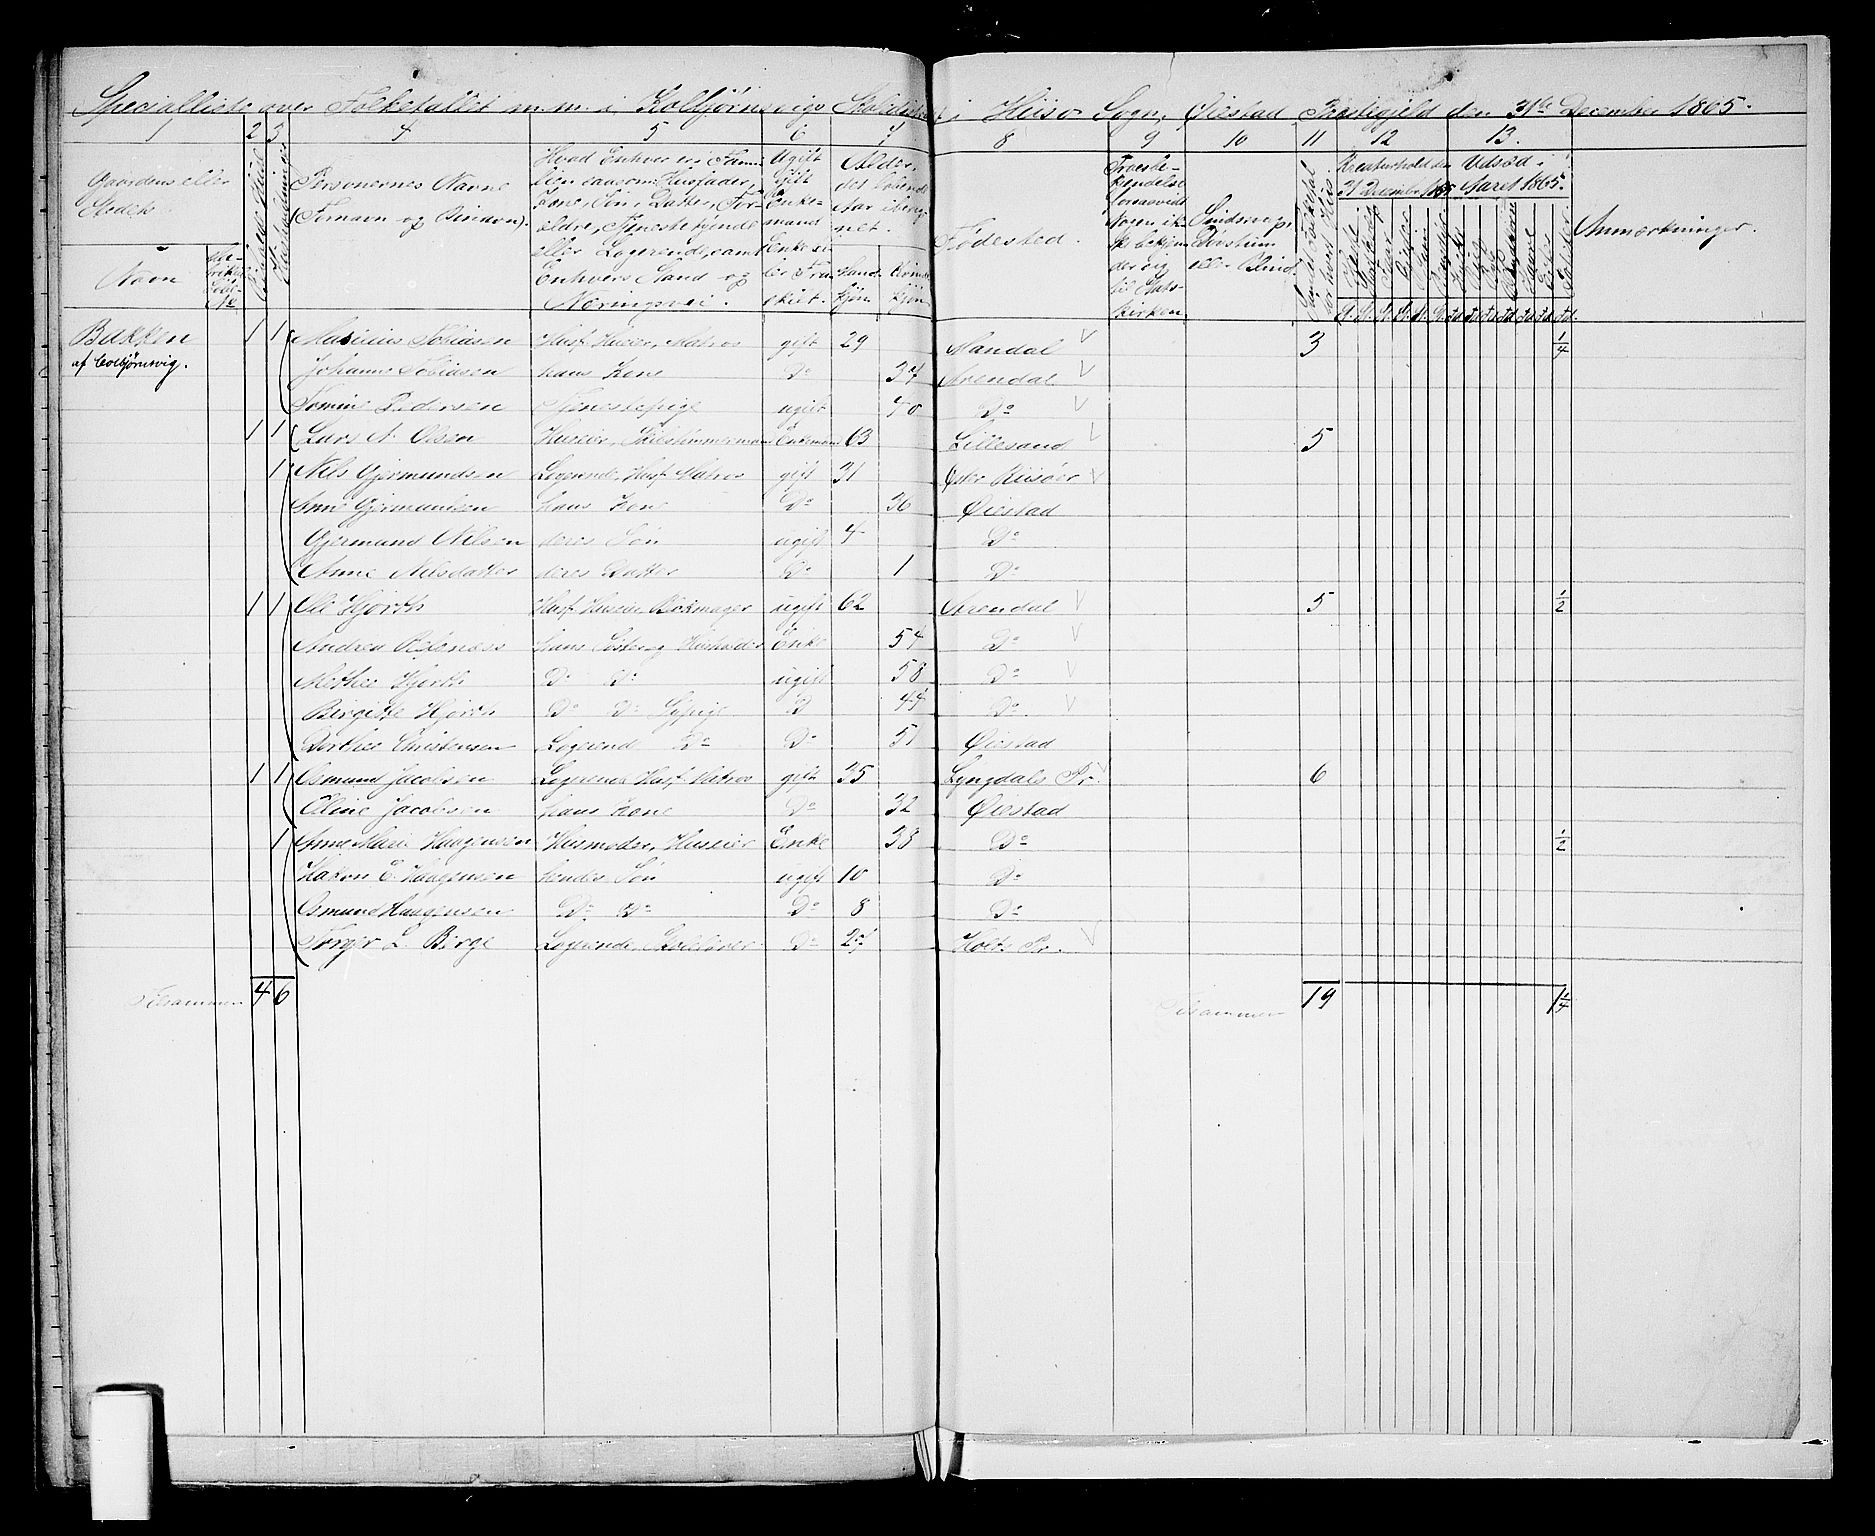 Specialliste over Folketallet m. m. i Kolbjørnsvigs Skoledistrict i Hiisø Sogn, Øiestad Præstegjeld den 31te December 1865.
2 3 4 5 6 7 8 9 10 11 12 13
Gaardens eller Stedets
Navn
Personernes Navne (Fornavn og Tilnavn).
Hvad Enhver er i Familien saasom Husfader, Kone, Søn, Datter, Forældre, Tjenestetyende eller Logerende, samt Enhvers Stand og Næringsvei.
Ugift Gift Enkemand Enke eller Fraskilt.
Alder, det løbende Aar iberegnet.
Mandkjøn Kvindekjøn
Fødested.
Troesbekjendelse forsaavidt Nogen ikke bekjender sig til Statskirken
Sindssvag, Døvstum eller Blind
Kreaturhold den 31 December 1865
Udsæd i Aaret 1865.
Anmærkninger.
Bakken 1 1 Tobiasen Husf. Huseier, Matros gift 29 Mandal 3 1/4
af Colbjørnsvig. Johanne Tobiasen hans Kone Do 34 Arendal
Tomine Pedersen Tjenestepige ugift 40 Do
1 1 Lars N. Olsen Huseier, Skibstømmermand Enkemand 63 Lillesand 5
1 Nils Gjermundsen Logerende, Husf. Matros gift 31 Øster Riisøer
Anne Gjermundsen hans Kone Do 36 Øiestad
Gjermund Nilsen deres Søn ugift 4 Do
Anne Nilsdatter deres Datter Do 1 Do
1 1 Ole Hjorth Husf. Huseier Blokmager ugift 62 Arendal 5 1/2
Andrea hans Søster og Husholder Enke 54 Do
Methee Hjorth Do Do ugift 58 Do
Birgitte Hjorth Do Do Sypige D 44 Do
Dorthee Christensen Logerend Do Do 51 Øiestad
1 1 Osmund Jacobsen Logerende Husf. Matros gift 35 Lyngdals Pr. 6
Eline Jacobsen hans Kone Do 32 Øiestad
1 Anne Marie Haagensen Husmoder, Huseier Enke 38 Do 1/2
Hakon E. Haagensen hendes Søn ugift 10 Do
Osmund Haagensen Do Do Do 8 Do
Torger L. Berge Logerende, Skolelærer Do 24 Holts Pr.
Tilsammen 4 6 Tilsammen 19 1 1/4